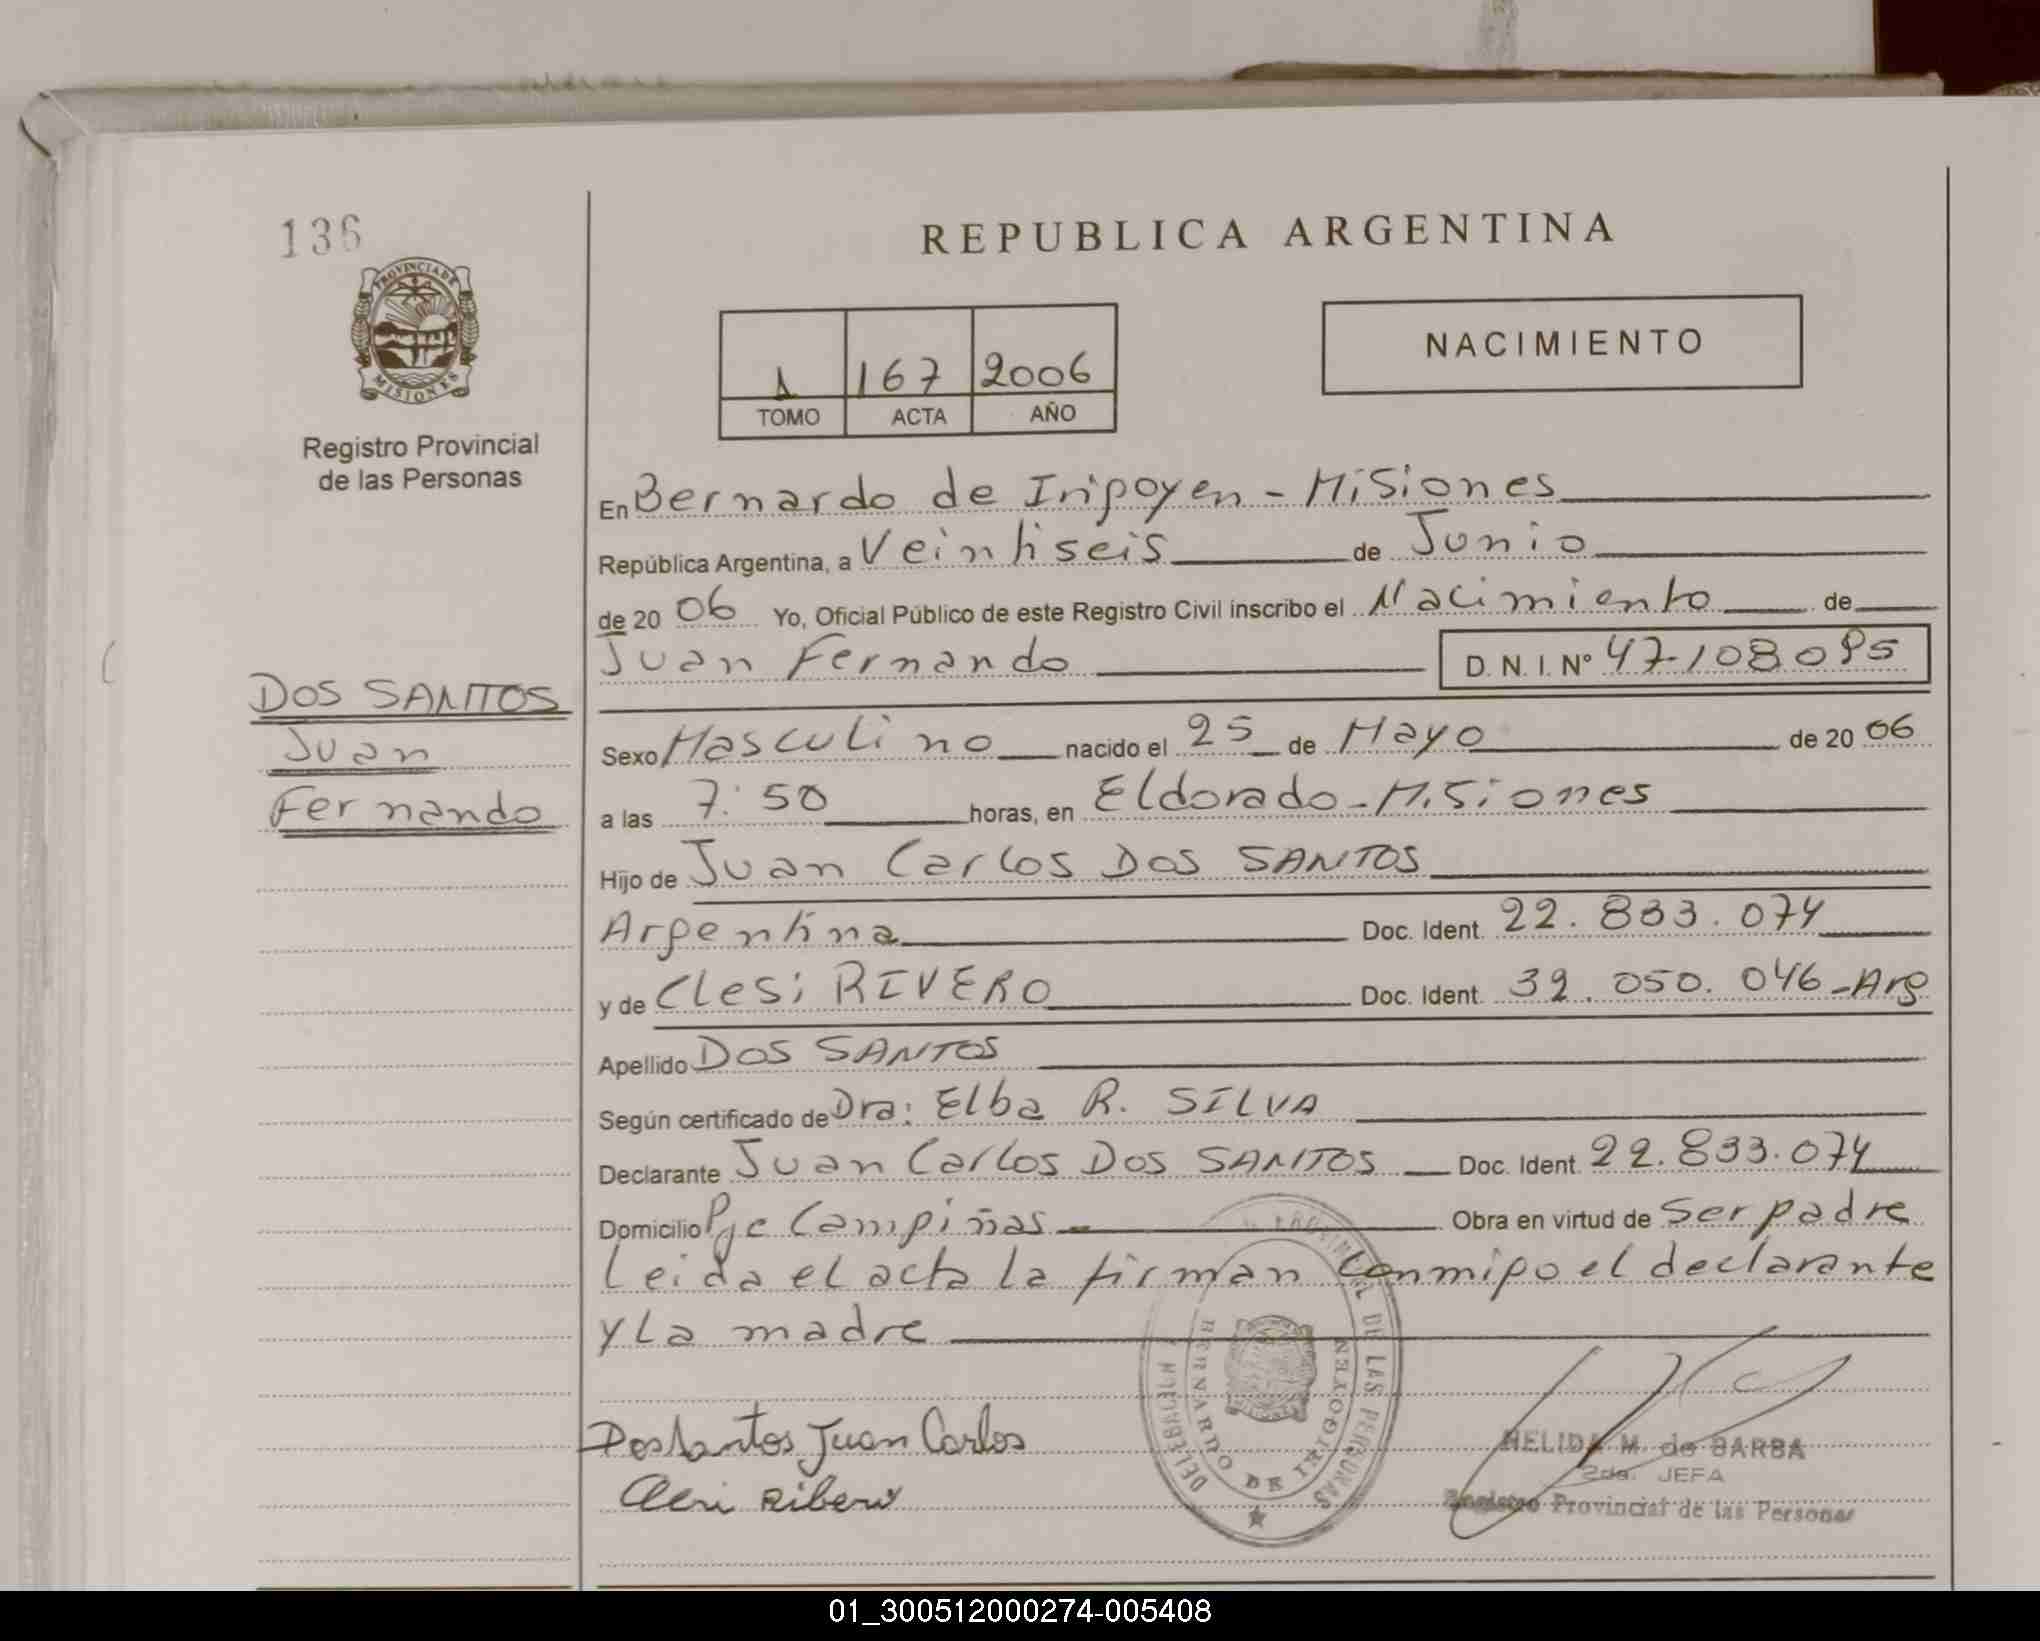 136
PROVINCIA DE
MISIONES
Registro Provincial
de las Personas
REPUBLICA ARGENTINA
1 167 2006
TOMO ACTA AÑO
NACIMIENTO
En Bernardo de Irigoyen - Misiones
República Argentina, a Veintiseis de Junio
de 20 06 Yo, Oficial Público de este Registro Civil inscribo el Nacimiento de
Juan Fernando D. N. I. Nº 47.108.095
DOS SANTOS
Juan
Fernando
Sexo Masculino nacido el 25 de Mayo de 20 06
a las 7:50 horas, en Eldorado - Misiones
Hijo de Juan Carlos DOS SANTOS
Argentina Doc. Ident. 22.833.074
y de Clesi RIVERO Doc. Ident. 32.050.046 - Arg
Apellido DOS SANTOS
Según certificado de Dra: Elba R. SILVA
Declarante Juan Carlos DOS SANTOS Doc. Ident. 22.833.074
Domicilio Pje Campiñas Obra en virtud de Ser padre
Leida el acta la firman conmigo el declarante
y La madre
Dos Santos Juan Carlos
Ribero
PROVINCIAL DE LAS PERSONAS
BERNARDO DE IRIGOYEN
NELIDA M. de BARBA
2da. JEFA
Registro Provincial de las Personas
01_300512000274-005408